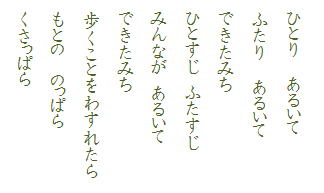 ひとり　あるいて
ふたり　あるいて
できたみち
ひとすじ　ふたすじ
みんなが　あるいて
できたみち
歩くことをわすれたら
もとの　のっぱら
くさっぱら